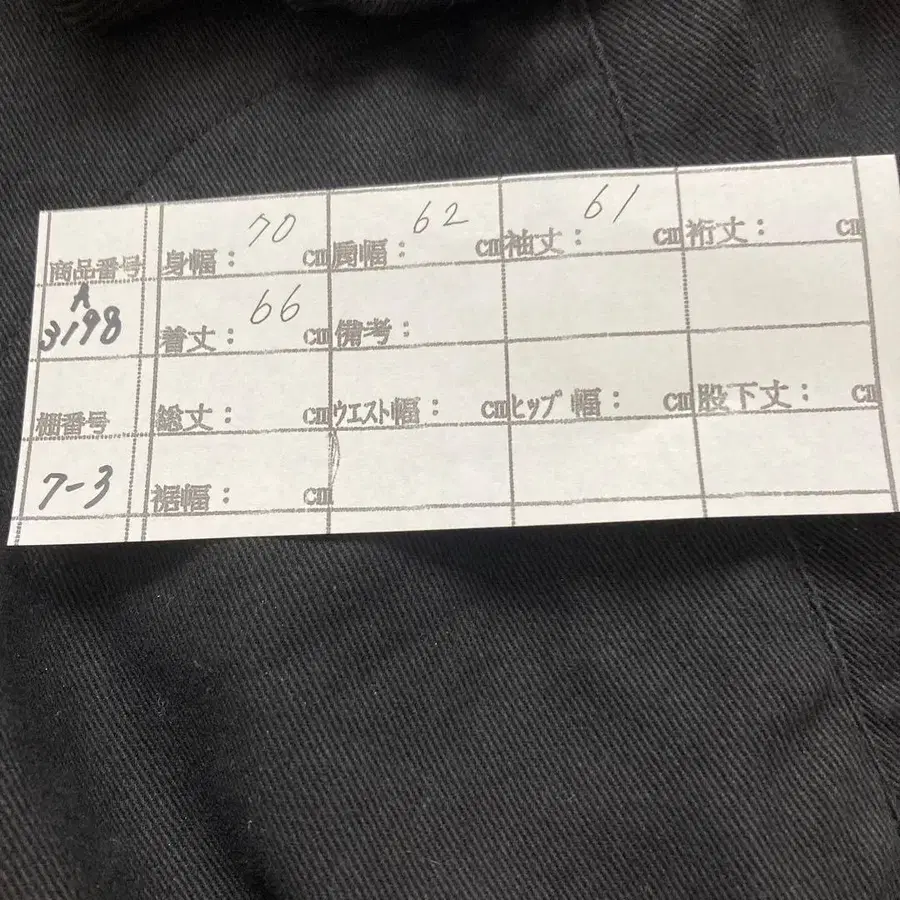 商品番号 身幅: 70 cm 肩幅: 62 cm 袖丈: 61 cm 裄丈: cm
A
3198 着丈: 66 cm 備考:
棚番号 総丈: cm ウエスト幅: cm ヒップ幅: cm 股下丈: cm
7-3 裾幅: cm